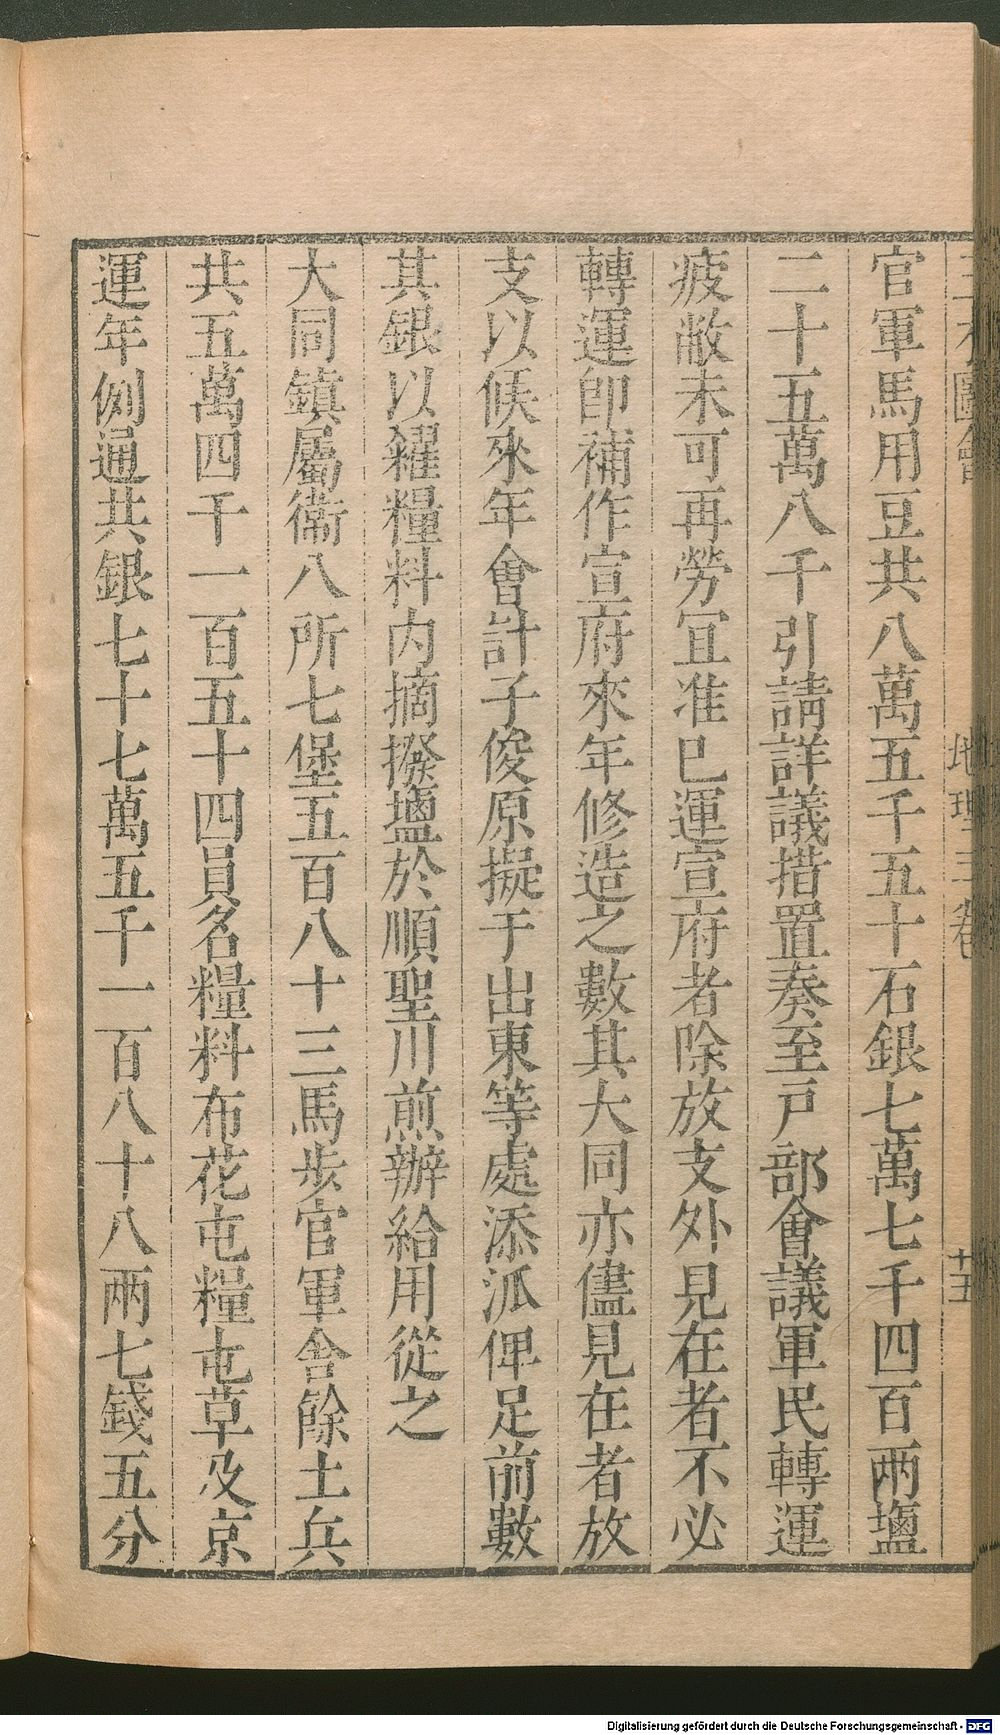 三才圖會 地理三卷 十五
官軍馬用豆共八萬五千五十石銀七萬七千四百兩鹽
二十五萬八千引請詳議措置奏至戶部會議軍民轉運
疲敝未可再勞冝准巳運宣府者除放支外見在者不必
轉運卽補作宣府來年修造之數其大同亦儘見在者放
支以候來年會計子俊原擬于出東等處添派俾足前數
其銀以糴糧料内摘撥鹽於順聖川煎辦給用從之
大同鎮屬衞八所七堡五百八十三馬步官軍舍餘土兵
共五萬四千一百五十四員名糧料布花屯糧屯草及京
運年例通共銀七十七萬五千一百八十八兩七錢五分
Digitalisierung gefördert durch die Deutsche Forschungsgemeinschaft - DFG